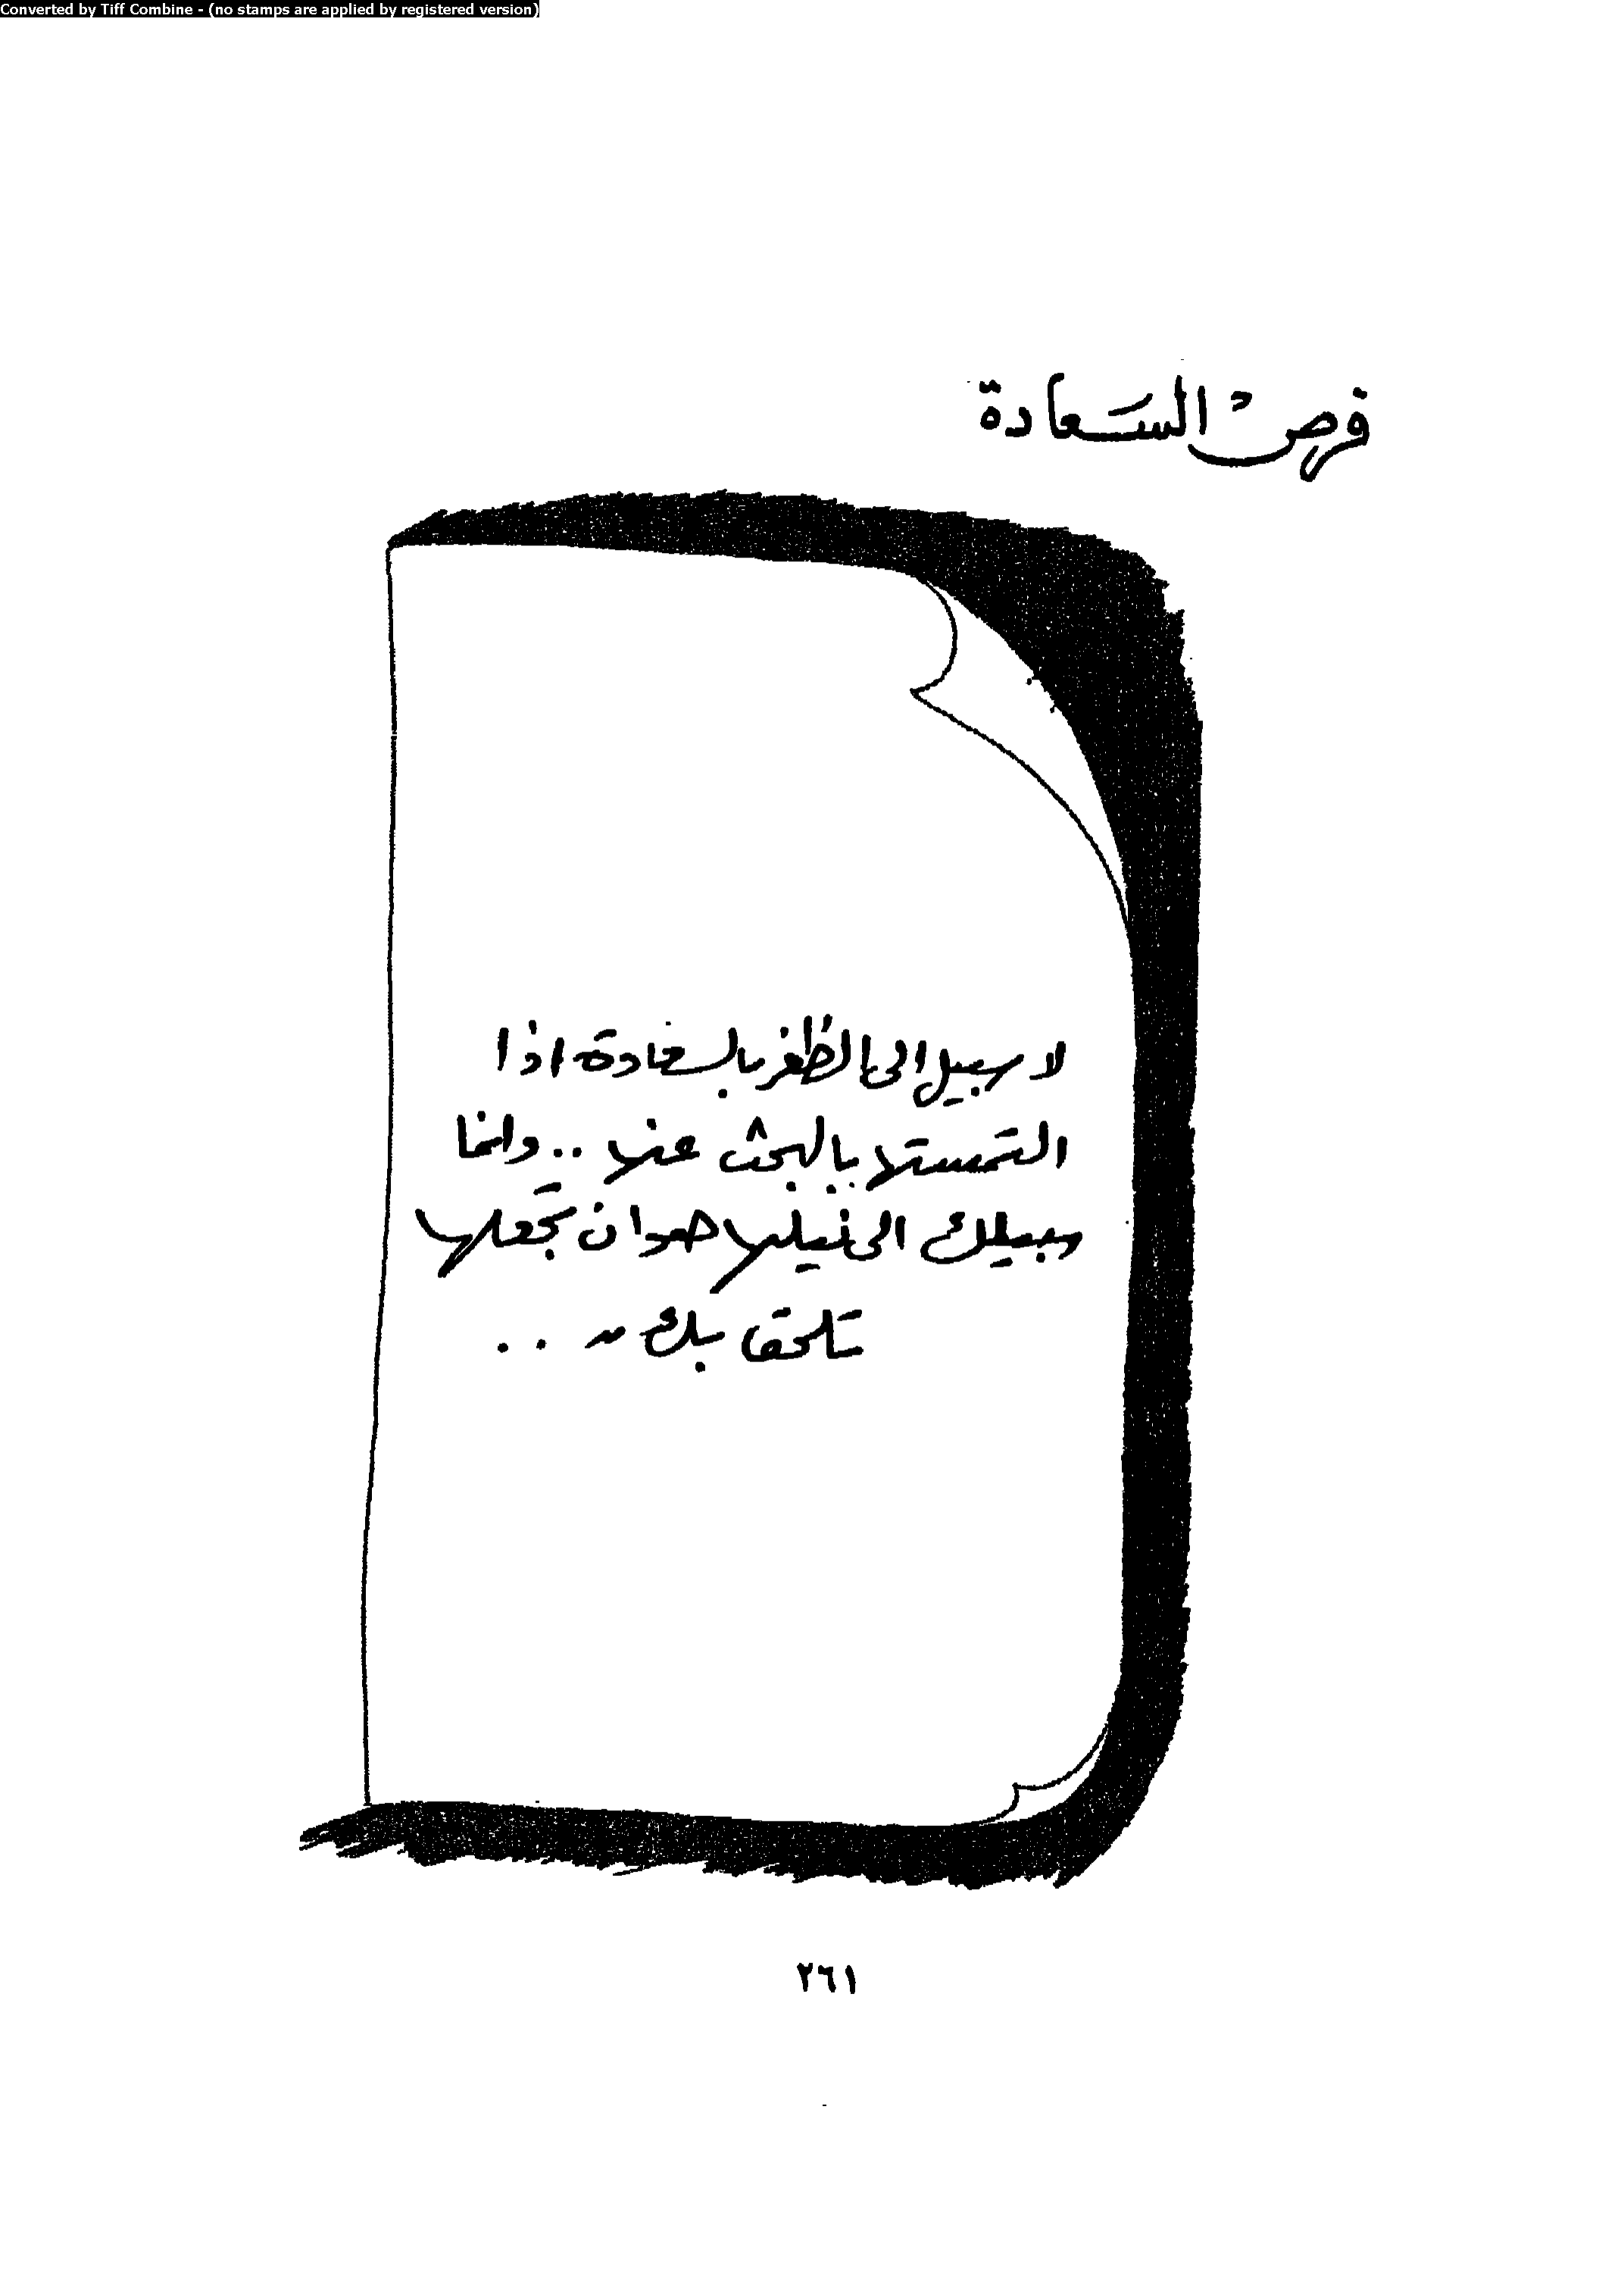 Converted by Tiff Combine - (no stamps are applied by registered version)
فرص السَعادة
لا سبيل الى الظفر بالسعادة اذا
التمستها بالبحث عنها .. وانما
سبيلك الى نيلها هو ان تجعلها
تلحق بك ..
٢٦١